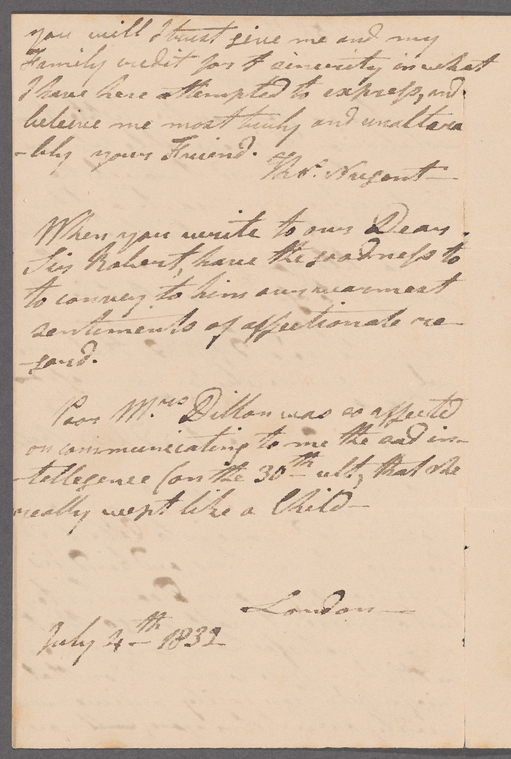 you will I trust give me and my
Family credit for the sincerity in what
I have here attempted to express, and
beleive me most truly and unaltera
-bly yours Friend.
Thos. Nugent
When you write to our Dear
Sir Robert, have the goodness to
to convey to him our warmest
sentiments of affectionate re-
-gard.
Poor Mrs Dillon was so affected
on communicating to me the sad in-
-tellegence (on the 30th ult, that she
really wept like a Child-
London
July 4th 1832